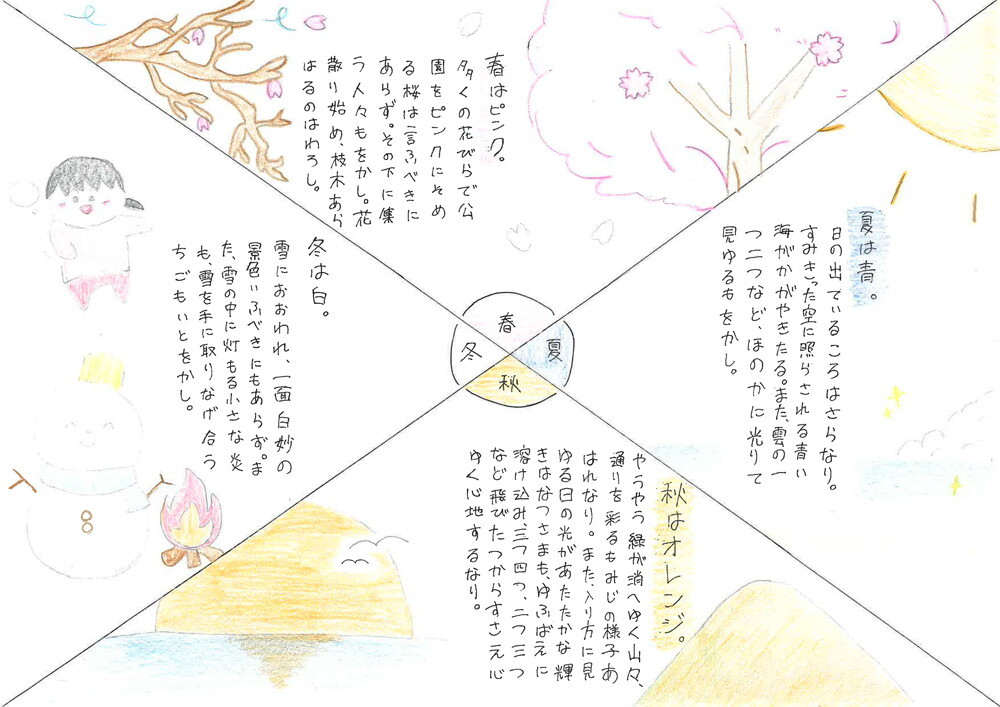 春はピンク。
多くの花びらで公
園をピンクにそめ
る桜は言ふべきに
あらず。その下に集
う人々もをかし。花
散り始め、枝木あら
はるのはわろし。
夏は青。
日の出ているころはさらなり。
すみきった空に照らされる青い
海がかがやきたる。また、雲の一
つ二つなど、ほのかに光りて
見ゆるもをかし。
秋はオレンジ。
やうやう緑が消へゆく山々、
通りを彩るもみじの様子あ
はれなり。また、入り方に見
ゆる日の光があたたかな輝
きはなつさまも、ゆふばえに
溶け込み、三つ四つ、二つ三つ
など飛びたつからすさえ心
ゆく心地するなり。
冬は白。
雪におおわれ、一面白妙の
景色いふべきにもあらず。ま
た、雪の中に灯もる小さな炎
も、雪を手に取りなげ合う
ちごもいとをかし。
春
夏
秋
冬